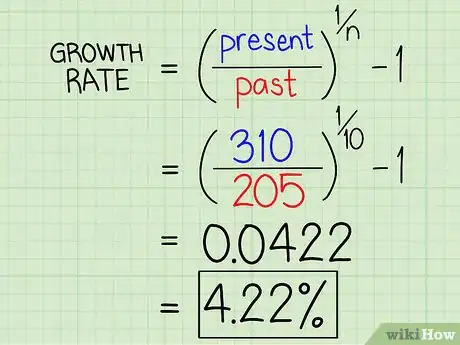 GROWTH RATE = (present/past)^1/n - 1
= (310/205)^1/10 - 1
= 0.0422
= 4.22%
wikiHow